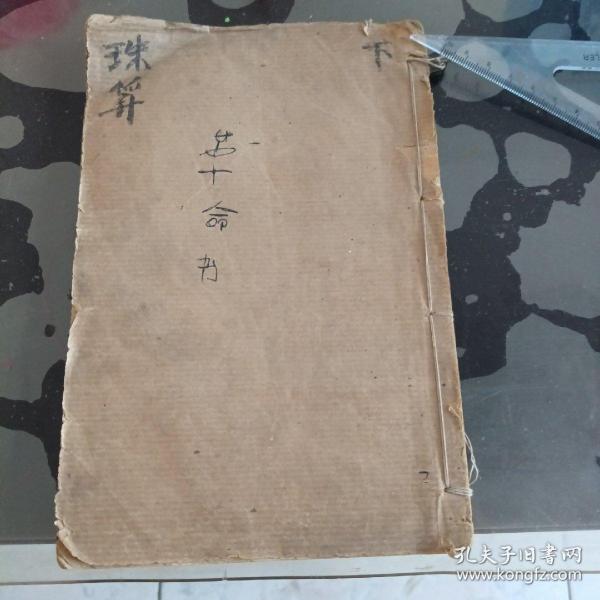 珠算
下
十
命
孔夫子旧书网
www.kongfz.com